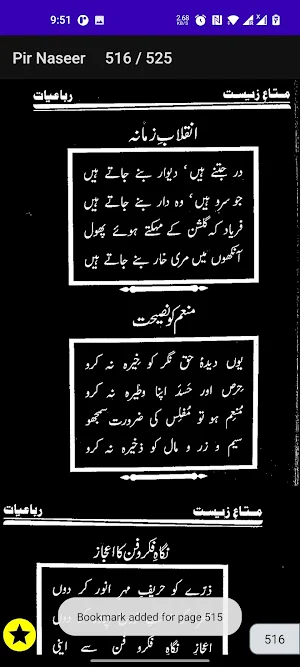 9:51
2.68
KB/S
Pir Naseer 516 / 525
متاعِ زیست
رباعیات
انقلابِ زمانہ
در جتنے ہیں، دیوار بنے جاتے ہیں
جو سرو ہیں، وہ دار بنے جاتے ہیں
فریاد کہ گلشن کے مہکتے ہوئے پھول
آنکھوں میں مری خار بنے جاتے ہیں
منعم کو نصیحت
یوں دیدۂ حق نگر کو خیرہ نہ کرو
حرص اور حسد اپنا وطیرہ نہ کرو
مُنعِم ہو تو مُفلِس کی ضرورت سمجھو
سیم و زر و مال کو ذخیرہ نہ کرو
متاعِ زیست
رباعیات
نگاہِ فکر و فن کا اعجاز
ذرّے کو حریفِ مہرِ انور کر دوں
Bookmark added for page 515
اعجازِ نگاہِ فکر و فن سے اپنی
516